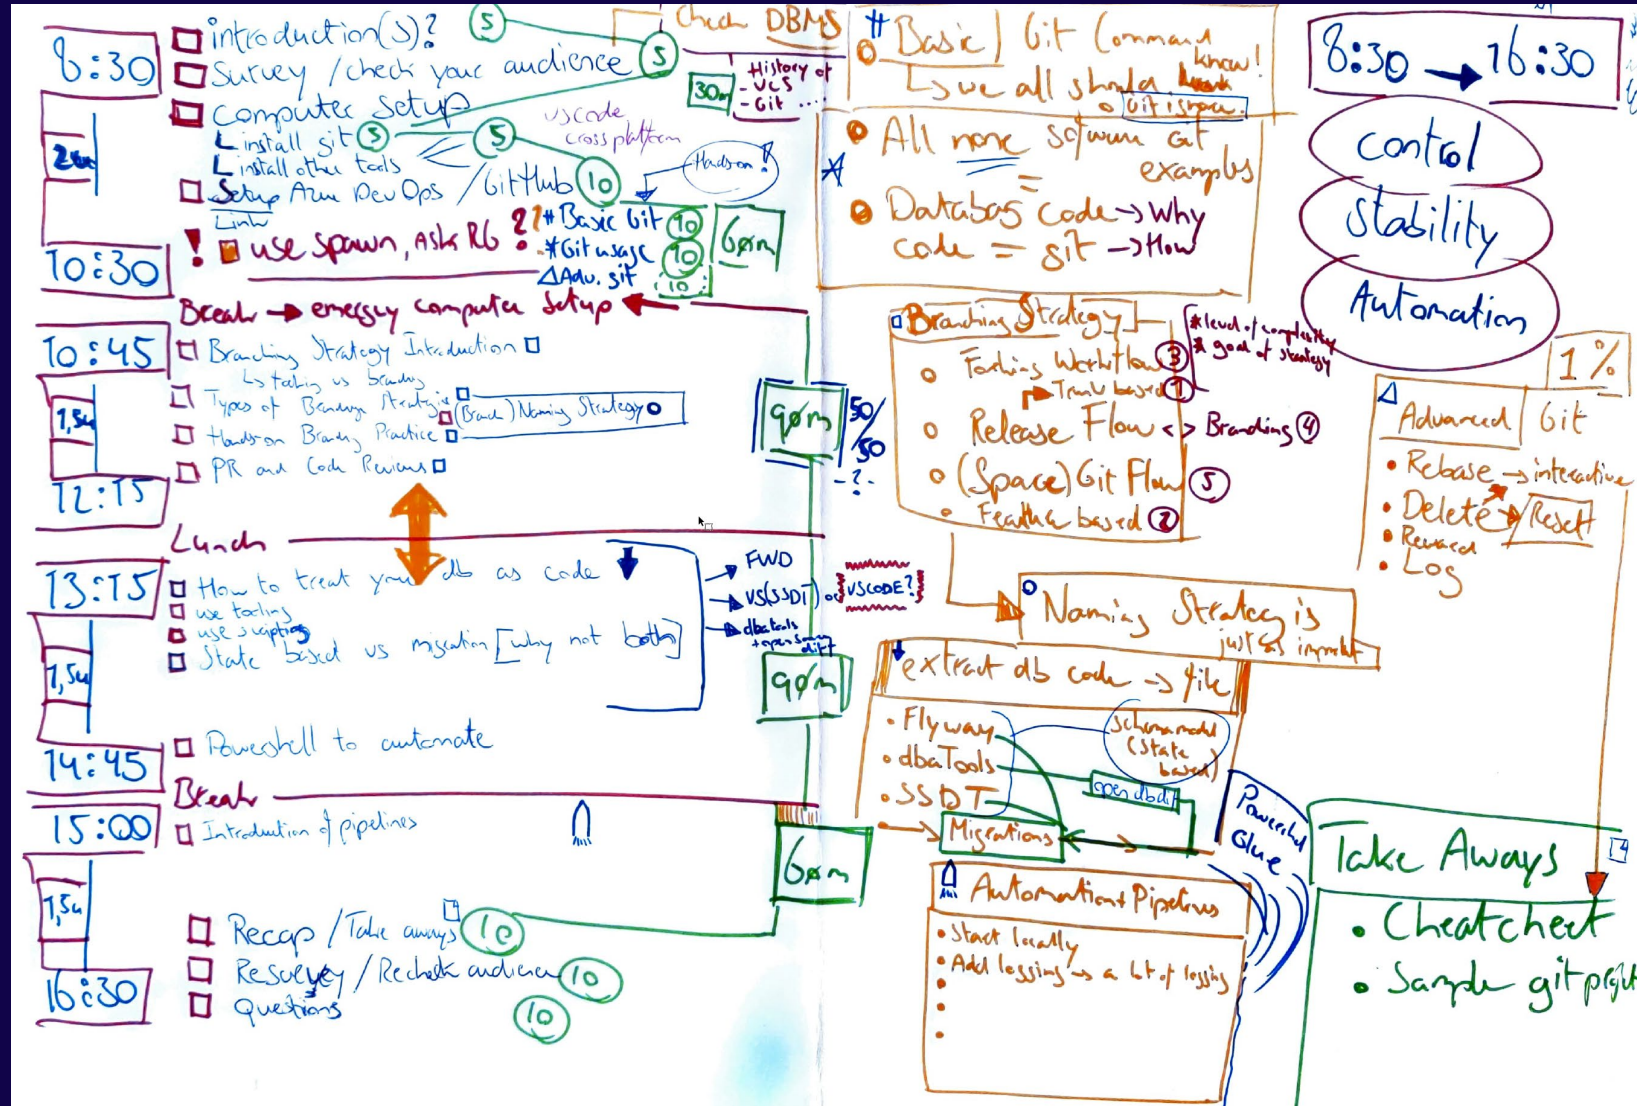 8:30
introduction(s)? 5
Survey / check your audience 5
Computer Setup
install git 5 5
install other tools
Setup Azure DevOps / GitHub 10
Link
! use spawn, Ask RG ?
10:30
vscode
cross platform
Hands on!
# Basic Git 90
* Git usage 90
Δ Adv. git 10
60m
Check DBMS
30m
- History of
- VCS
- Git ....
Break → emergy computer setup
10:45
Branching Strategy Introduction
↳ tooling vs branding
Types of Branding Strategies
(Branch) Naming Strategy
1,5u
Hands on Branding Practice
PR and Code Reviews
12:15
90m
50/
50
- ? -
Lunch
13:15
How to treat your db as code
use tooling
use scripting
State based vs migration [why not both]
1,5u
FWD
VS(SSDT) or VSCODE?
dbatools
90m
Powershell to automate
14:45
Break
15:00
Introduction of pipelines
60m
1,5u
Recap / Take aways 10
Resurvey / Recheck audience 10
16:30
Questions 10
#
Basic Git Command
↳ we all should know!
Git is more.
All none software Git
examples
Databas code → Why
code = git → How
Branching Strategy
* level of complexity
* goal of strategy
Forking Workflow 3
Trunk based 1
Release Flow <> Branding 4
(Space) Git Flow 5
Feathur based 2
Naming Strategy is
just as important
extract db code → file
Flyway
dbaTools
SSDT
Schema model
(State
based)
open dbdiff
Migrations
Powerful
Glue
Automation + Pipelines
Start locally
Add logging → a lot of logging
8:30 → 16:30
Control
Stability
Automation
1%
Δ
Advanced Git
Rebase → interactive
Delete → Reset
Log
Take Aways
Cheatcheet
Sample git projt